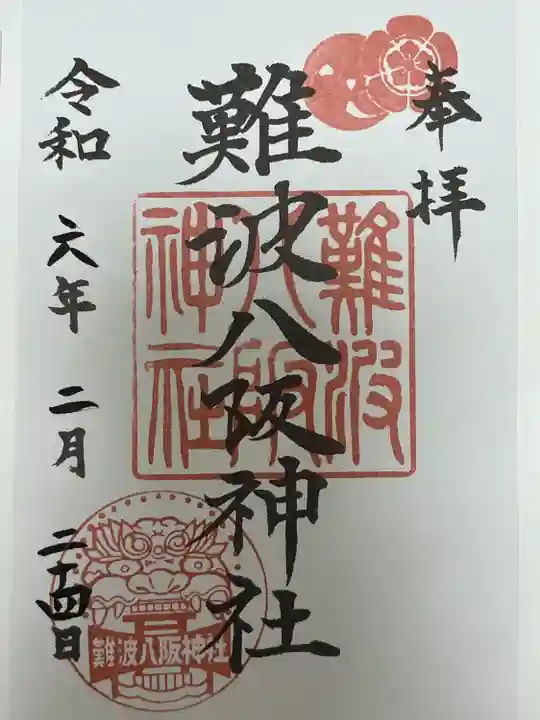 奉拝
難波八阪神社
難波八阪神社
令和六年二月二十四日
難波八阪神社